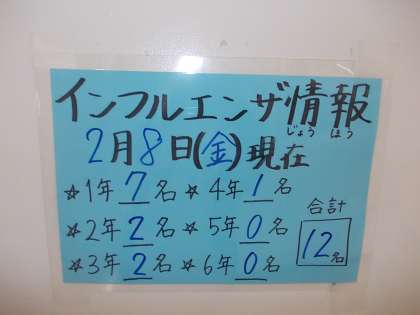 インフルエンザ情報
じょうほう
2月8日(金)現在
☆1年 7名 ☆4年 1名
☆2年 2名 ☆5年 0名
☆3年 2名 ☆6年 0名
合計
12名